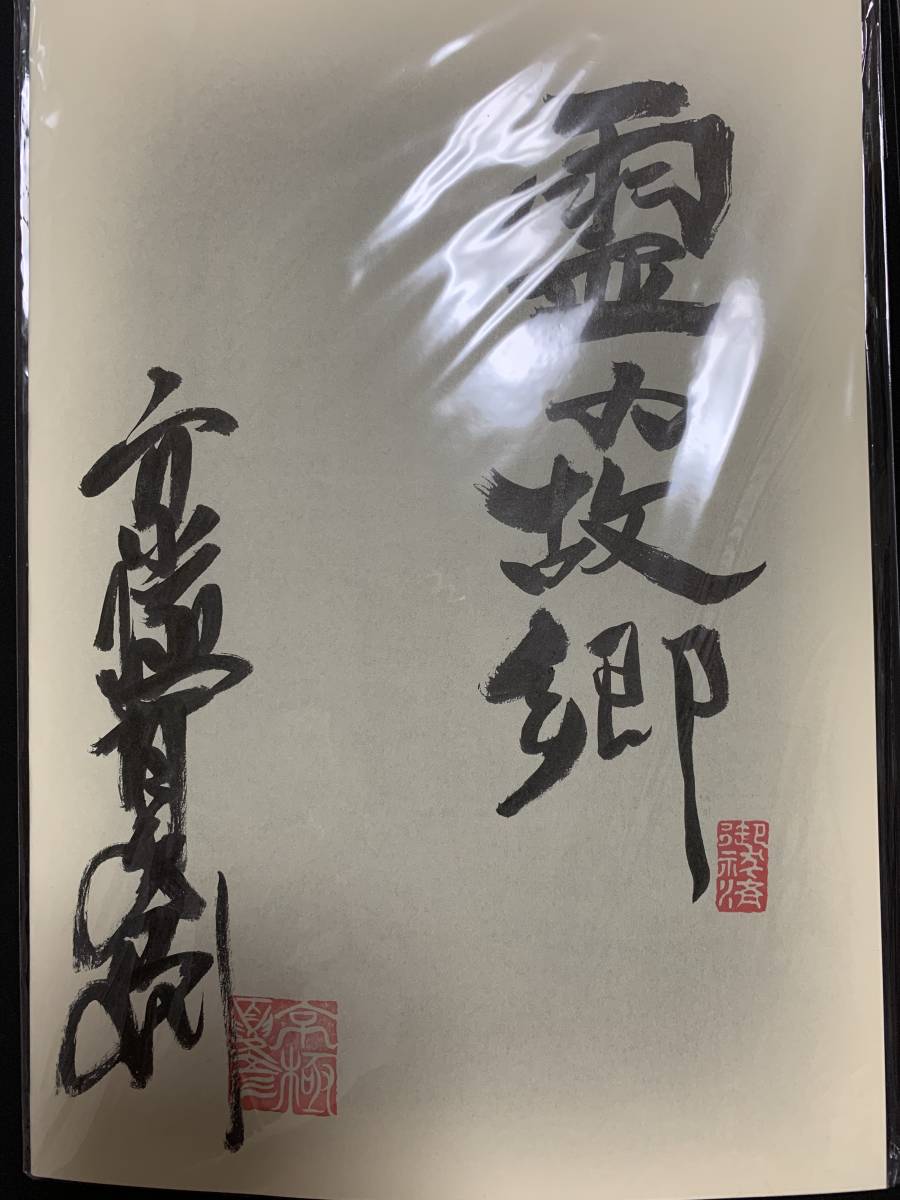 霊故郷
御祓済
京極夏彦
京極夏彦